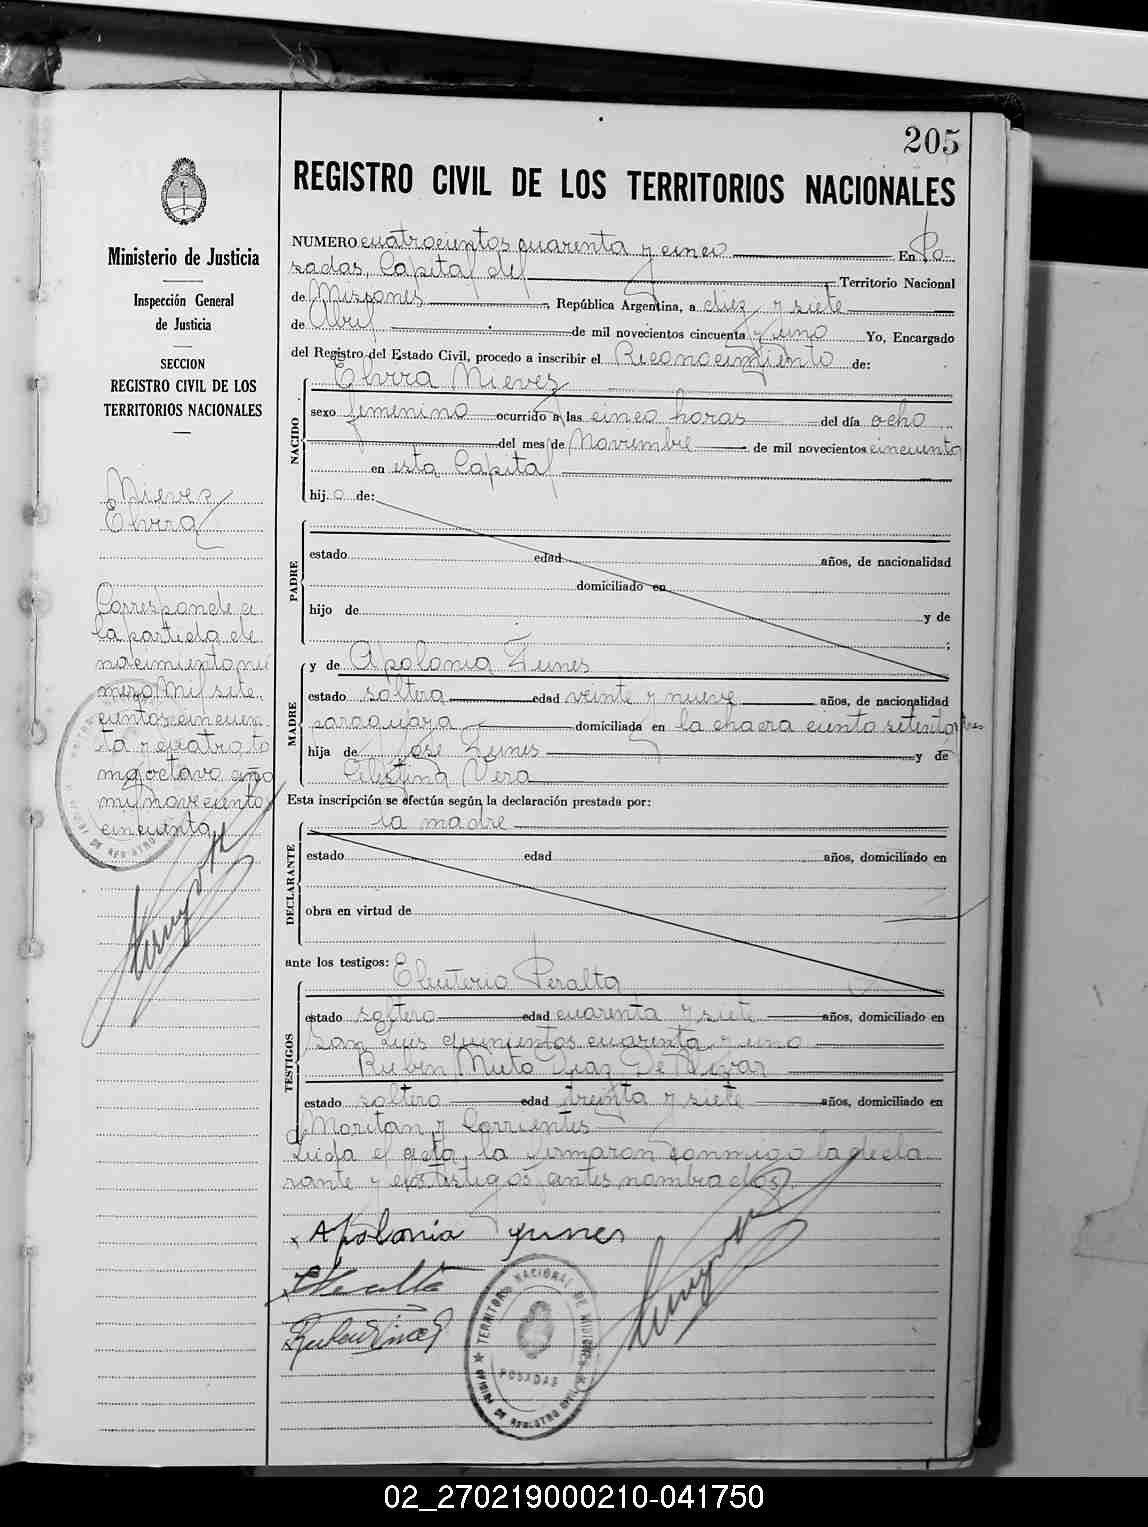 205
REGISTRO CIVIL DE LOS TERRITORIOS NACIONALES
Ministerio de Justicia
Inspección General
de Justicia
SECCION
REGISTRO CIVIL DE LOS
TERRITORIOS NACIONALES
Nievez
Elvira
Corresponde a
la partida de
nacimiento nú
mero Mil sete
cientos cincuen
ta y cuatro to
mo octavo año
mil novecientos
cincuenta
NUMERO cuatrocientos cuarenta y cinco En Po-
sadas, Capital del Territorio Nacional
de Misiones, República Argentina, a diez y siete
de Abril de mil novecientos cincuenta y uno Yo, Encargado
del Registro del Estado Civil, procedo a inscribir el Reconocimiento de:
Elvira Nievez
NACIDO
sexo femenino ocurrido a las cinco horas del día ocho
del mes de Noviembre de mil novecientos cincuenta
en esta Capital
hija de:
PADRE
estado edad años, de nacionalidad
domiciliado en
hijo de y de
;
MADRE
y de Apolonia Zunes
estado soltera edad veinte y nueve años, de nacionalidad
paraguaya domiciliada en la chacra ciento setenta y tres
hija de José Zunes y de
Celestina Vera
Esta inscripción se efectúa según la declaración prestada por:
la madre
DECLARANTE
estado edad años, domiciliado en
obra en virtud de
ante los testigos: Eleuterio Peralta
TESTIGOS
estado soltero edad cuarenta y siete años, domiciliado en
San Luis quinientos cuarenta y uno
Ruben Diaz De Vivar
estado soltero edad treinta y siete años, domiciliado en
Moritan y Corrientes
Leida el acta, la firmaron conmigo la decla
rante y los testigos antes nombrados
x Apolonia Yunes
TERRITORIO NACIONAL DE MISIONES
POSADAS
OFICINA DE REGISTRO CIVIL
02_270219000210-041750